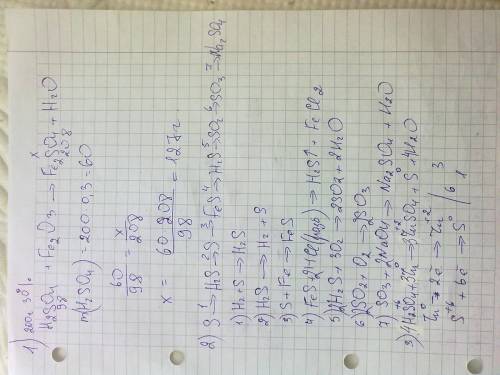 1) 200г 30%
x
H2SO4 + Fe2O3 → Fe2SO4 + H2O
98 208
m(H2SO4) = 200·0,3 = 60
60/98 = x/208
x = 60·208/98 = 127г
2) S →1 H2S →2 S →3 FeS →4 H2S →5 SO2 →6 SO3 →7 Na2SO4
1) H2 + S → H2S
2) H2S → H2 + S
3) S + Fe → FeS
4) FeS + 2HCl(разб) → H2S↑ + FeCl2
5) 2H2S + 3O2 → 2SO2 + 2H2O
6) 2SO2 + O2 → 2SO3
7) SO3 + 2NaOH → Na2SO4 + H2O
3) 4H2SO4 + 3Zn → 3ZnSO4 + S + 4H2O
Zn⁰ - 2e → Zn+2 3
S+6 + 6e → S⁰ | 6 | 1